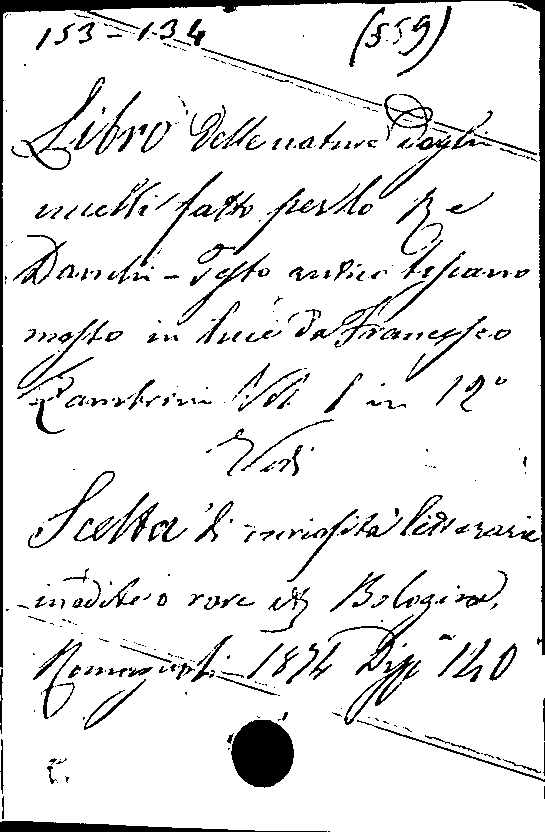 153-134 (559)
Libro delle nature degli
uccelli fatto per lo Re
Danchi - Testo antico toscano
messo in luce da Francesco
Zambrini Vol 1 in 12°
Vedi
Scelta di curiosità letterarie
inedite o rare etc Bologna,
Romagnoli - 1874 Disp<sup>a</sup> 140